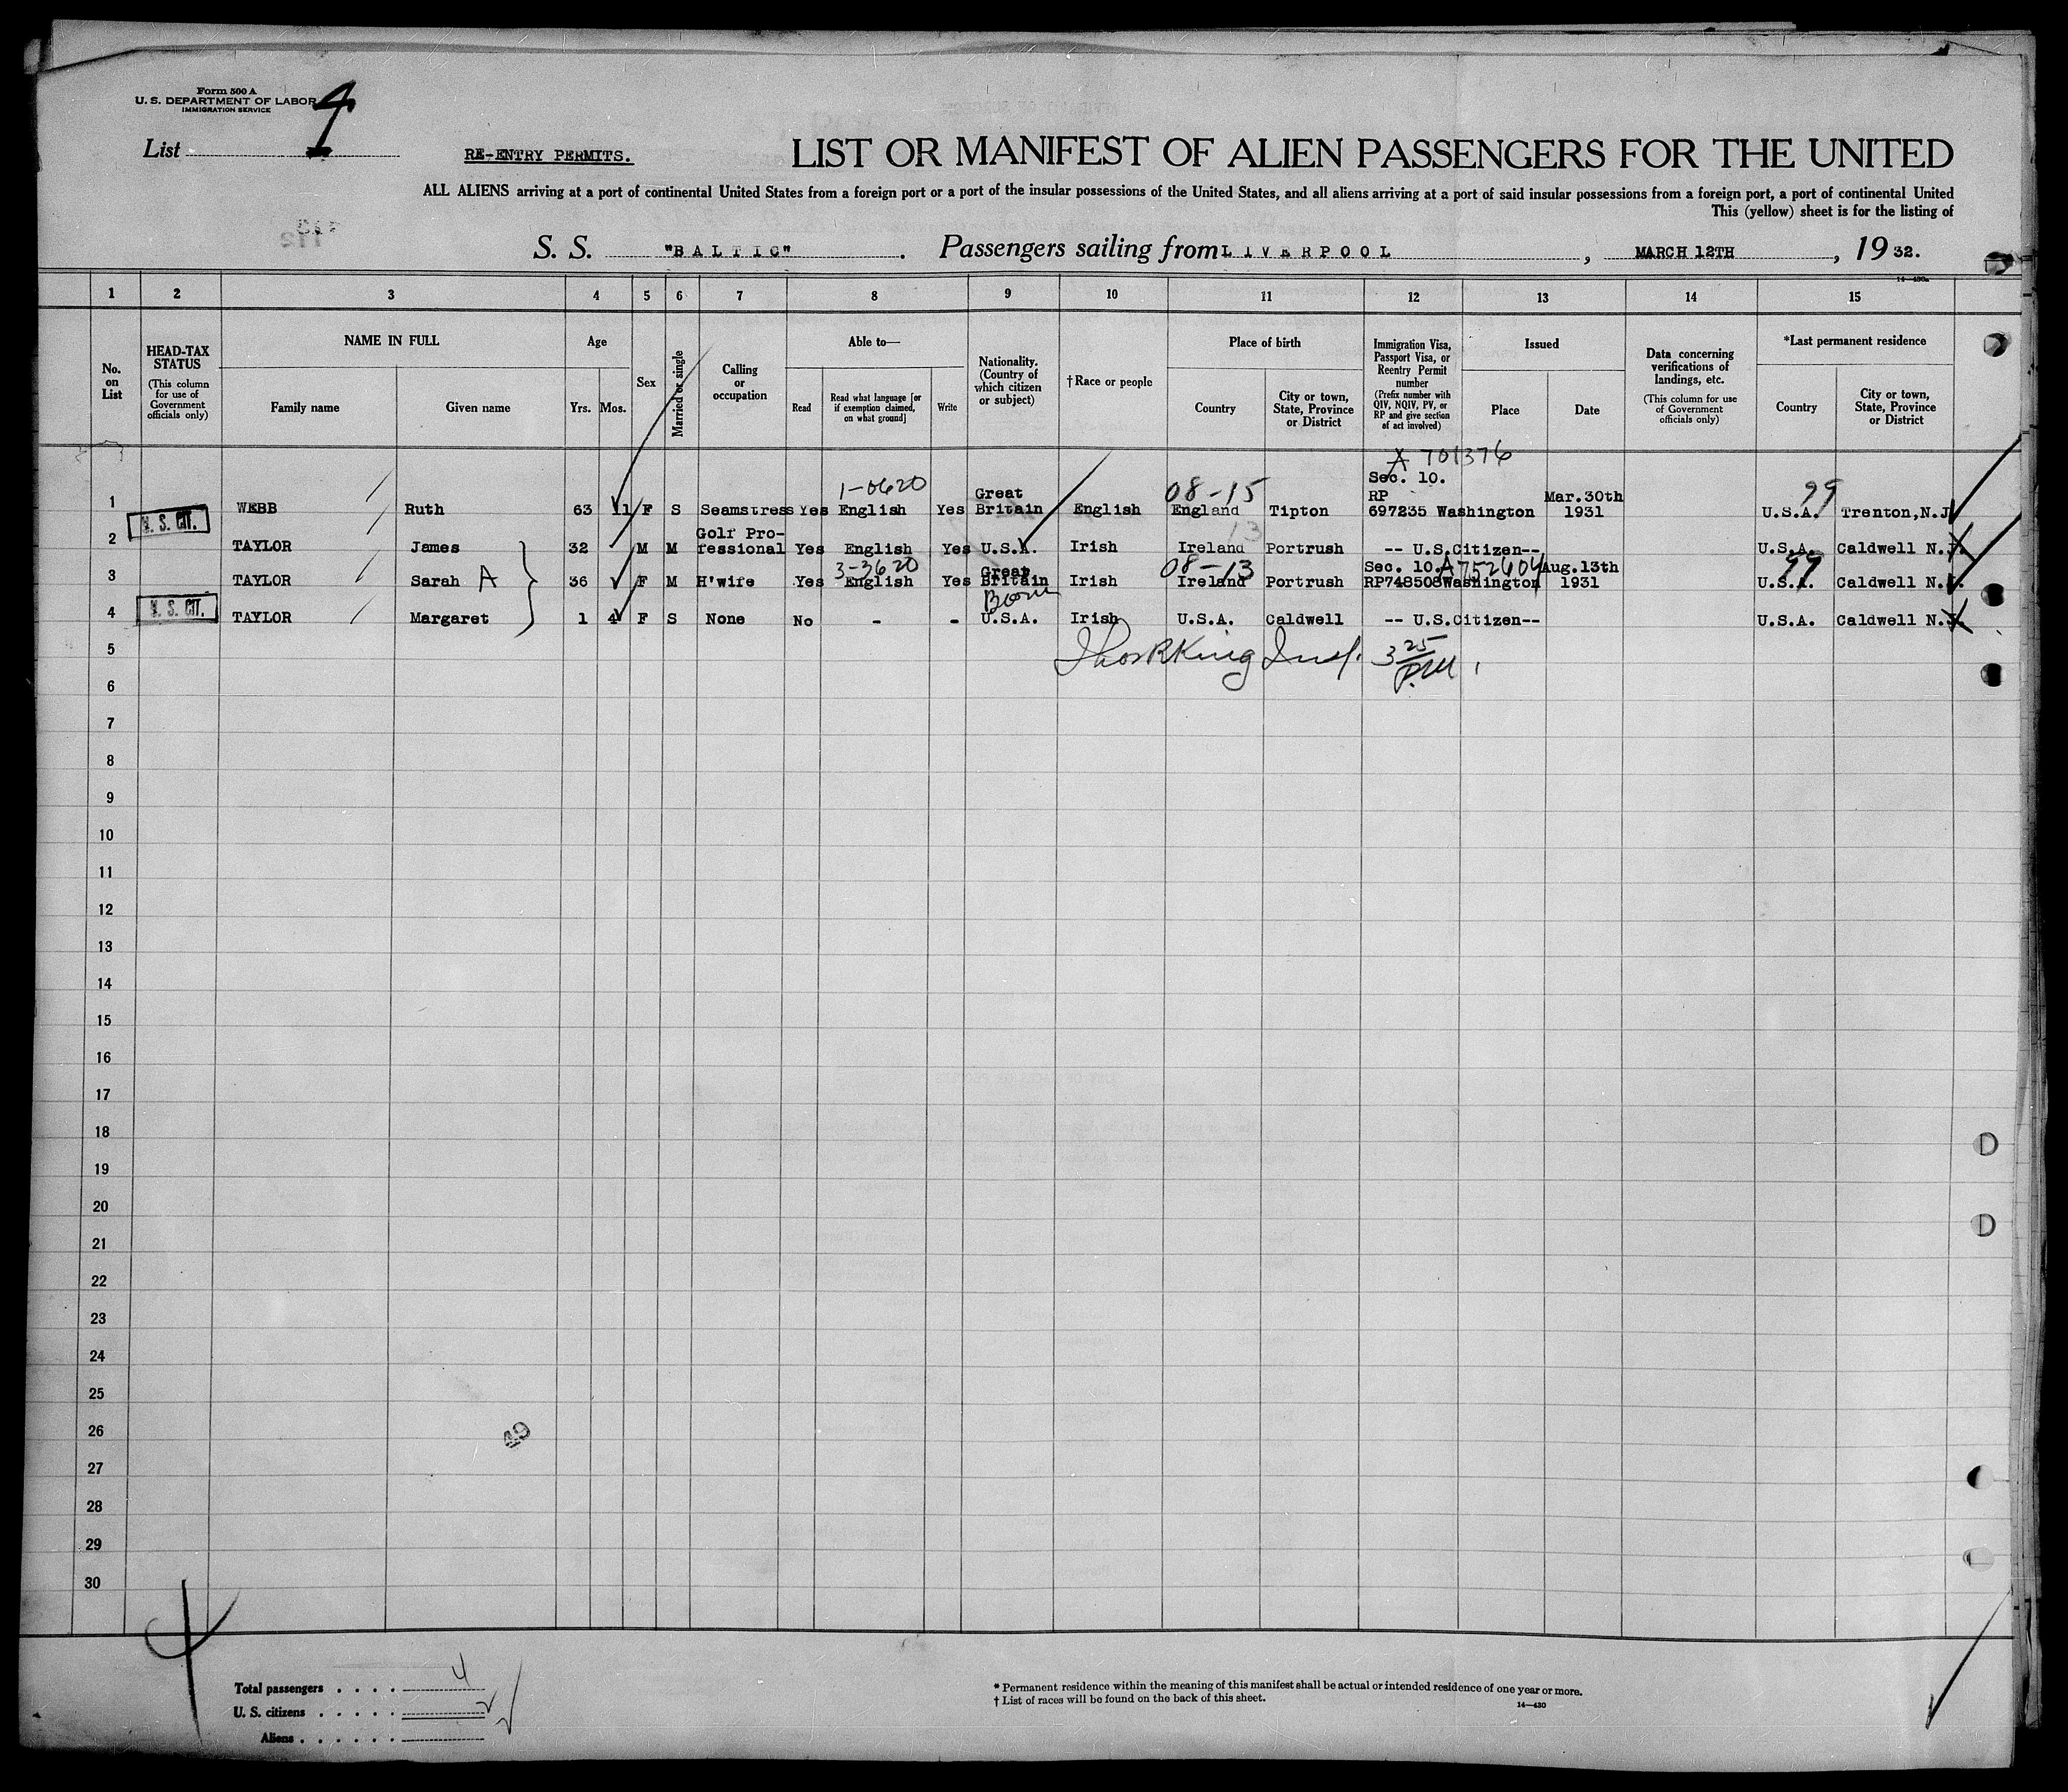 Form 500 A
U. S. DEPARTMENT OF LABOR
IMMIGRATION SERVICE
List 4
RE-ENTRY PERMITS.
LIST OR MANIFEST OF ALIEN PASSENGERS FOR THE UNITED
ALL ALIENS arriving at a port of continental United States from a foreign port or a port of the insular possessions of the United States, and all aliens arriving at a port of said insular possessions from a foreign port, a port of continental United
This (yellow) sheet is for the listing of
S. S. "BALTIC". Passengers sailing from LIVERPOOL, MARCH 12TH, 1932.
14—430a
1 2 3 4 5 6 7 8 9 10 11 12 13 14 15
No. on List
HEAD-TAX STATUS (This column for use of Government officials only)
NAME IN FULL
Family name Given name
Age
Yrs. Mos.
Sex
Married or single
Calling or occupation
Able to—
Read Read what language [or if exemption claimed, on what ground] Write
Nationality. (Country of which citizen or subject)
†Race or people
Place of birth
Country City or town, State, Province or District
Immigration Visa, Passport Visa, or Reentry Permit number (Prefix number with QIV, NQIV, PV, or RP and give section of act involved)
Issued
Place Date
Data concerning verifications of landings, etc. (This column for use of Government officials only)
*Last permanent residence
Country City or town, State, Province or District
A 701376
1-0620 08-15 Sec. 10. 99
1 WEBB Ruth 63 11 F S Seamstress Yes English Yes Great Britain English England Tipton RP 697235 Washington Mar.30th 1931 U.S.A. Trenton,N.J
U. S. CIT.
13
2 TAYLOR James 32 M M Golf Professional Yes English Yes U.S.A. Irish Ireland Portrush -- U.S.Citizen-- U.S.A. Caldwell N.J.
3-3620 08-13 A752604 99
3 TAYLOR Sarah A 36 F M H'wife Yes English Yes Great Britain Irish Ireland Portrush Sec. 10. RP748508 Washington Aug.13th 1931 U.S.A. Caldwell N.J.
U. S. CIT.
Born
4 TAYLOR Margaret 1 4 F S None No - - U.S.A. Irish U.S.A. Caldwell -- U.S.Citizen-- U.S.A. Caldwell N.J.
Thos R King Insp. 3 25 P.M.
5
6
7
8
9
10
11
12
13
14
15
16
17
18
19
20
21
22
23
24
25
26
49
27
28
29
30
Total passengers . . . . 4
U. S. citizens . . . . . 2
Aliens . . . . . .
* Permanent residence within the meaning of this manifest shall be actual or intended residence of one year or more.
† List of races will be found on the back of this sheet.
14—430